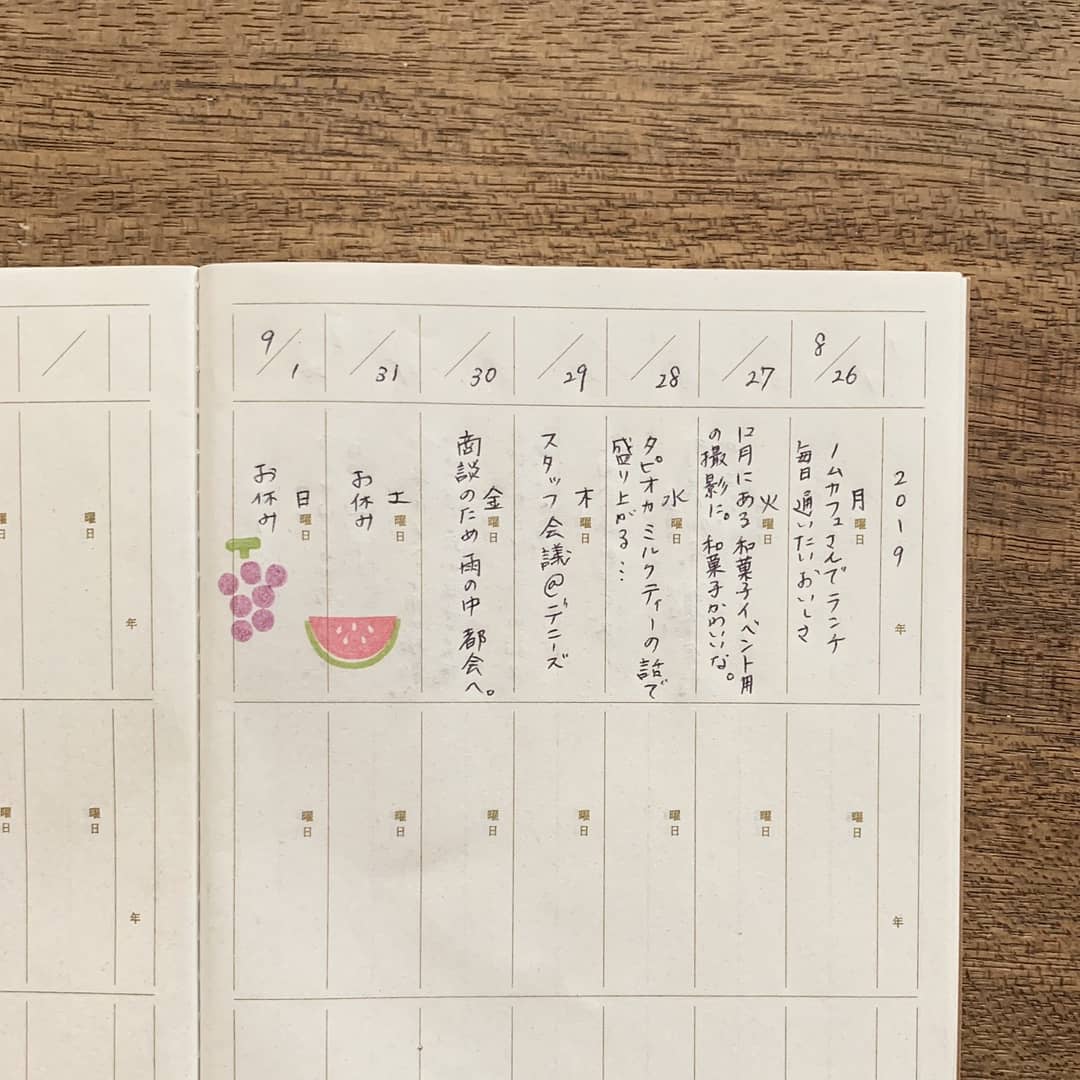 2019
年
8/26
月曜日
ノムカフェさんでランチ
毎日通いたいおいしさ
/27
火曜日
12月にある和菓子イベント用
の撮影に。和菓子かわいいな。
/28
水曜日
タピオカミルクティーの話で
盛り上がる…
/29
木曜日
スタッフ会議@デニーズ
/30
金曜日
商談のため雨の中都会へ。
/31
土曜日
お休み
9/1
日曜日
お休み
年
曜日
曜日
曜日
曜日
曜日
曜日
曜日
年
/
曜日
曜日
年
曜日
曜日